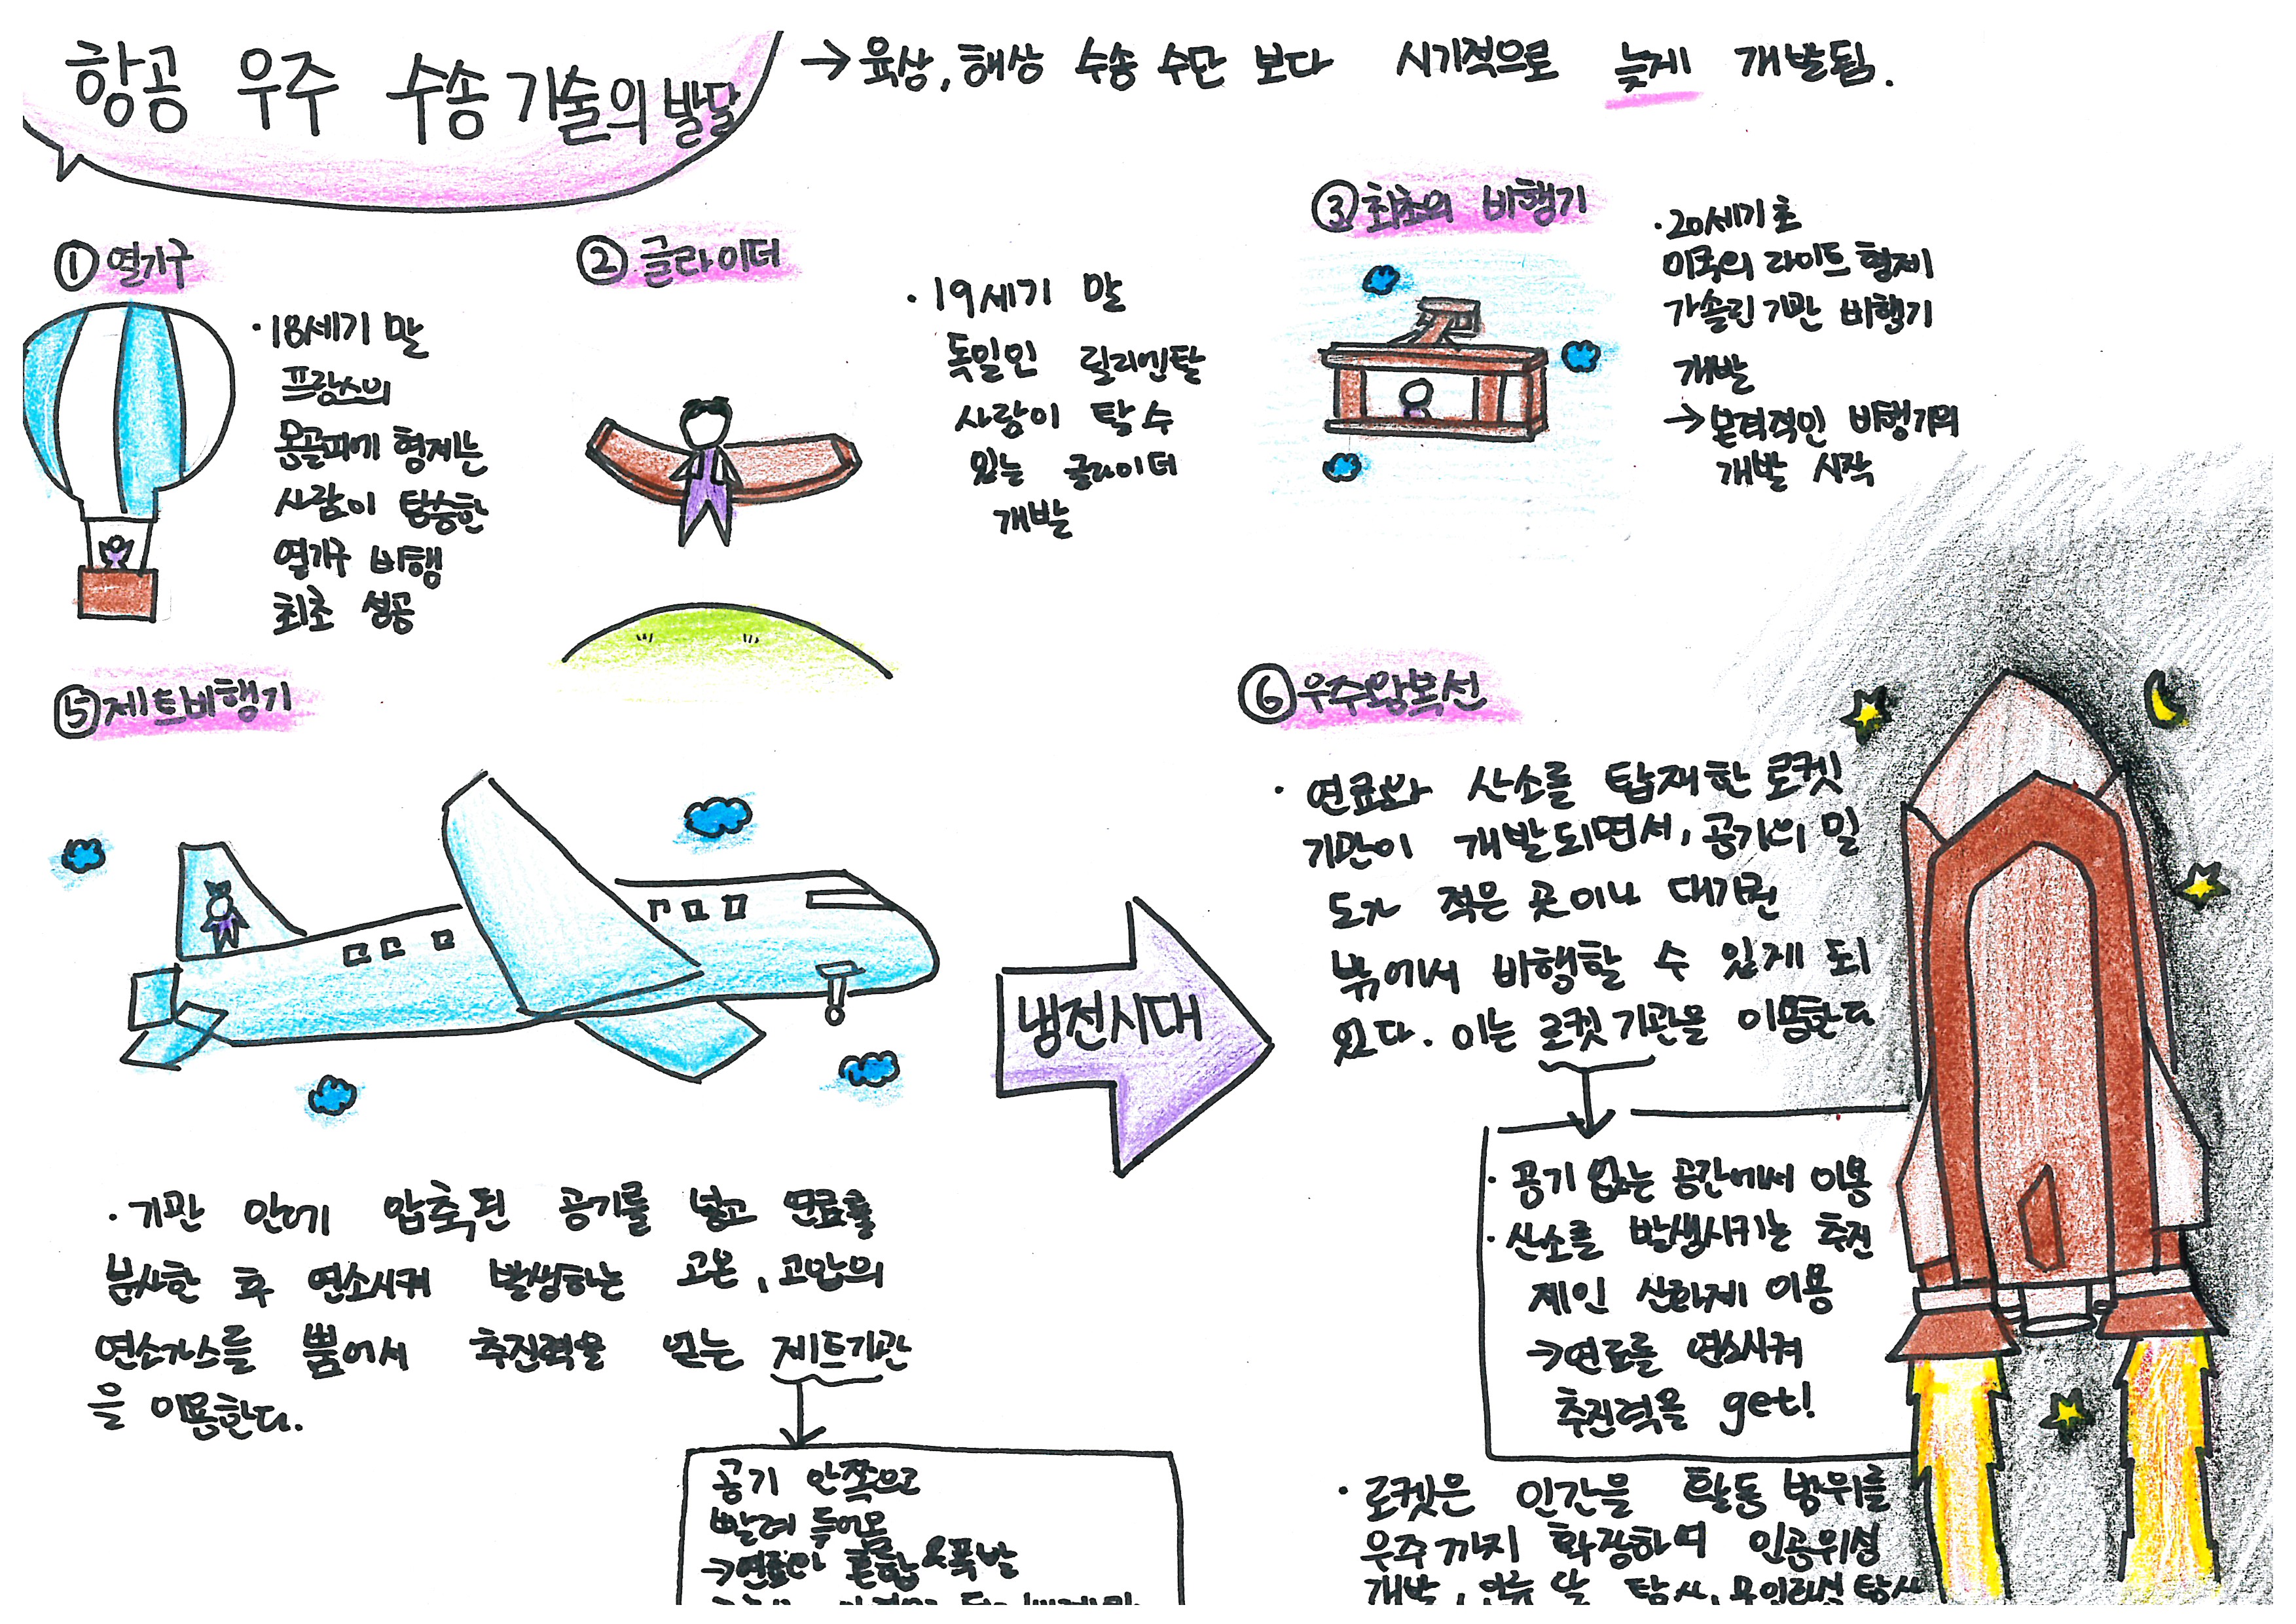 항공 우주 수송 기술의 발달
→ 육상, 해상 수송 수단 보다 시기적으로 늦게 개발됨.
① 열기구
· 18세기 말
프랑스의
몽골피에 형제는
사람이 탑승한
열기구 비행
최초 성공
② 글라이더
· 19세기 말
독일인 릴리엔탈
사람이 탈 수
있는 글라이더
개발
③ 최초의 비행기
· 20세기 초
미국의 라이트 형제
가솔린 기관 비행기
개발
→ 본격적인 비행기의
개발 시작
⑤ 제트비행기
· 기관 안에 압축된 공기를 넣고 연료를
분사한 후 연소시켜 발생하는 고온, 고압의
연소가스를 뿜어서 추진력을 얻는 제트기관
을 이용한다.
공기 안쪽으로
빨려 들어옴
→ 연료와 혼합 & 폭발
냉전시대
⑥ 우주왕복선
· 연료와 산소를 탑재한 로켓
기관이 개발되면서, 공기의 밀
도가 적은 곳이나 대기권
밖에서 비행할 수 있게 되
었다. 이는 로켓기관을 이용한다
· 공기 없는 공간에서 이용
· 산소를 발생시키는 추진
제인 산화제 이용
→ 연료를 연소시켜
추진력을 get!
· 로켓은 인간을 활동 범위를
우주까지 확장하며 인공위성
개발, 달 탐사,